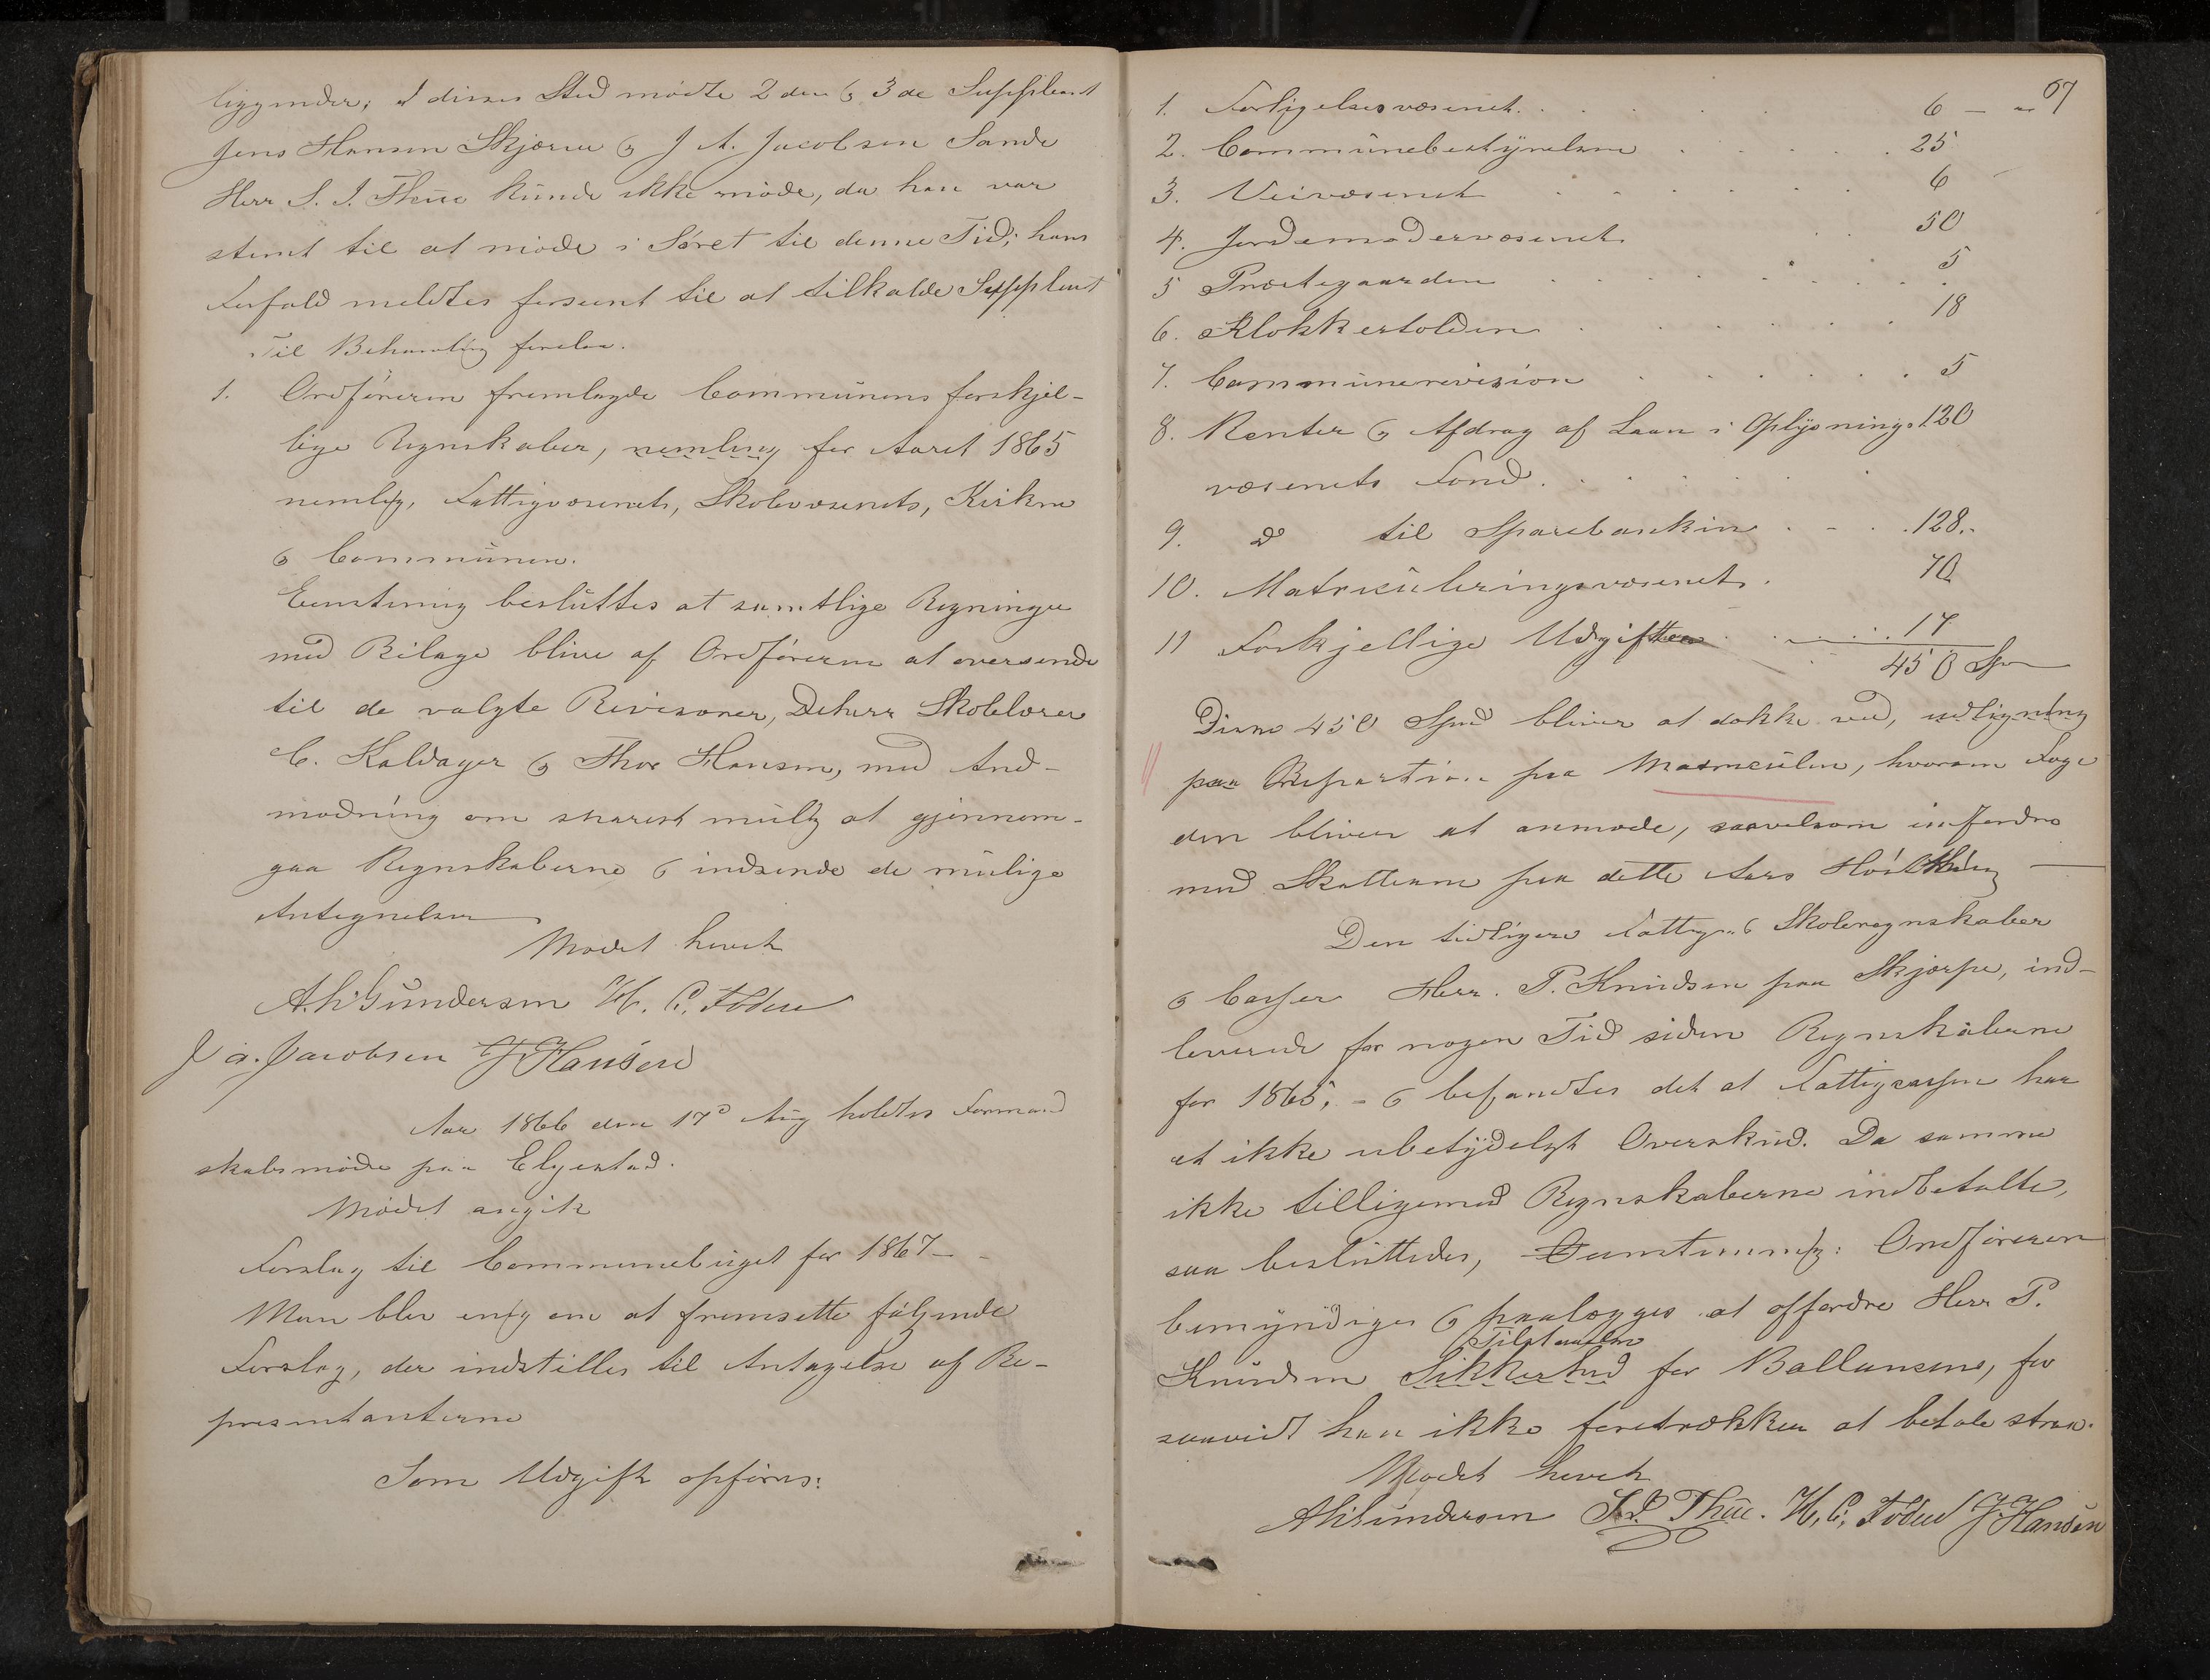 liggender; I disses Sted mødte 2den & 3de Suppleant
Jens Hansen Skjærve & J A. Jacobsen Sande
Herr S. I. Thue kunde ikke møde, da han var
stemt til at møde i Søret til denne Tid; hans
Forfald meldtes forseent til at tilkalde Suppleant
Til Behandling forelaa.
1. Ordføreren fremlagde Communens forskjel-
lige Regnskaber, nemlig for Aaret 1865
nemlig, Fattigvæsenets, Skolevæsenets, Kirkens
& Communen.
Eenstemig besluttes at samtlige Regninger
med Bilage blive af Ordføreren at oversende
til de valgte Revisorer, Dherr Skolelærer
C. Kaldager & Thor Hansen, med And-
modning om snarest mulig at gjennem-
gaa Regnskaberne & indsende de mulige
Antegnelser
Mødet hævet
A. Gundersen H. C. Foden
J A. Jacobsen J Hansen
Aar 1866 den 17d Aug holdtes Formand
skabsmøde paa Elgestad.
Mødet angik
Forslag til Communebuget for 1867 –
Man blev enig om at fremsette følgende
Forslag, der indstilles til Antagelse af Re-
presentanterne
Som Udgift opføres:
67
1. Forligelsesvæsenet. 6 – "
2. Communebestyrelsen 25
3. Veivæsenet 6
4. Jordemodervæsenet 50
5 Præstegaarden 5
6. Klokkertolden 18
7. Communerevision 5
8. Renter & Afdrag af Laan i Oplysnings 120
væsenets Fond.
9. do til Sparebanken 128..
10. Matriculeringsvæsenet. 70
11 Forskjellige Udgifter 17
450 Spd
Disse 450 Spd bliver at dække ved, udligning
paa Repartision paa Matriculen, hvorom Foge
den bliver at anmode, saavelsom indfordres
med Skatterne paa dette Aars Høstthing
Den tidligere Fattig- & Skoleregnskaber
& Casser Herr. P. Knudsen paa Skjærpe, ind-
leverede for nogen Tid siden Regnskaberne
for 1865, – & befandtes det at Fattigcassen har
et ikke ubetydeligt Overskud. Da samme
ikke tilligemed Regnskaberne indbetalte,
saa besluttedes, Eenstemmig: Ordføreren
bemyndiges & paalægges at opfordre Herr P.
Tilstaaelse
Knudsen Sikkerhed for Ballansene, for
saavidt han ikke foretrækker at betale strax.
Mødet hævet
A Gundersen S. I. Thue. H. C. Foden J. Hansen